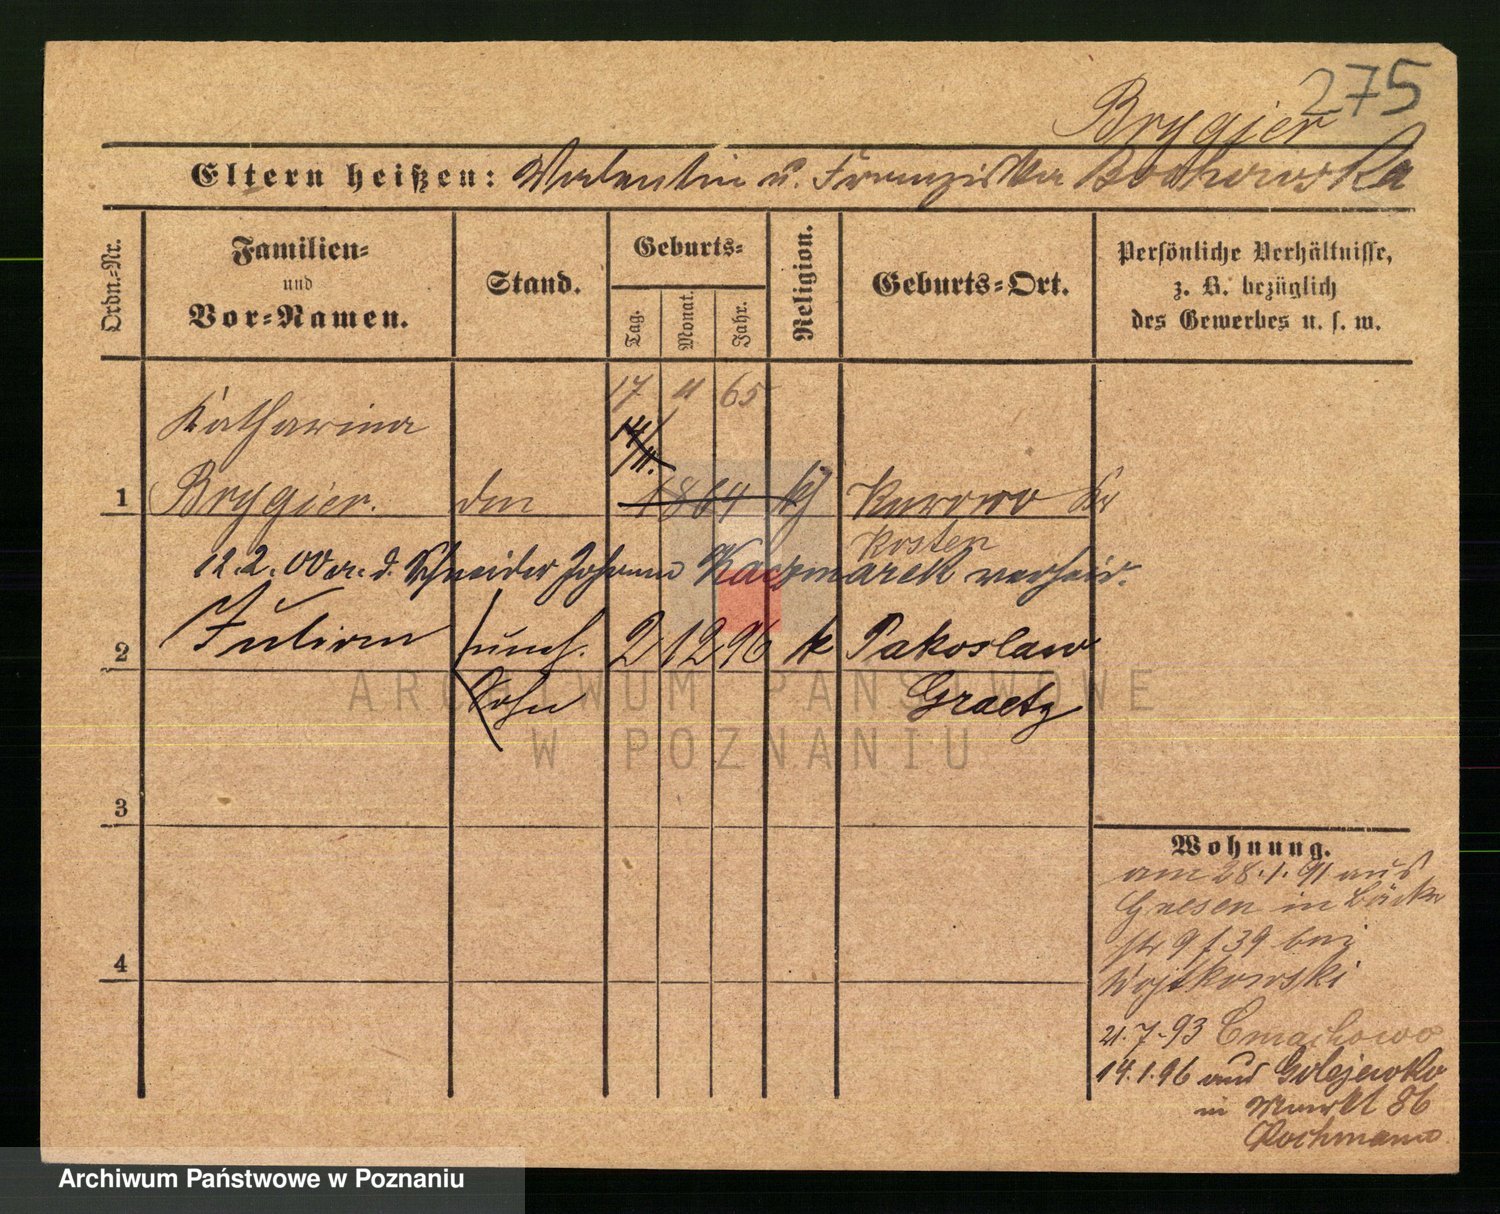 275
Brygier
Eltern heißen: Valentin u. Franziska Bochowska
Ordn.-Nr.
Familien-
und
Vor-Namen.
Stand.
Geburts-
Tag.
Monat.
Jahr.
Religion.
Geburts-Ort.
Persönliche Verhältnisse,
z. B. bezüglich
des Gewerbes u. s. w.
17 11 65
Katharina
14/11.
1 Brygier. 1864 k Kurowo Kr
Kosten
12.2.00 m. d. Schneider Johann Kaczmarek verheir.
2 Julian uneh. 2 12 96 k Pakoslaw
Sohn Graetz
3
4
Wohnung.
am 28.1.91 aus
Gnesen in Bäcker
str 9 f 39 bei
Wojtkowski
21.7.93 Cmachowo
14.1.96 aus Golejewko
in Markt 86
Rochmann
ARCHIWUM PAŃSTWOWE
W POZNANIU
Archiwum Państwowe w Poznaniu